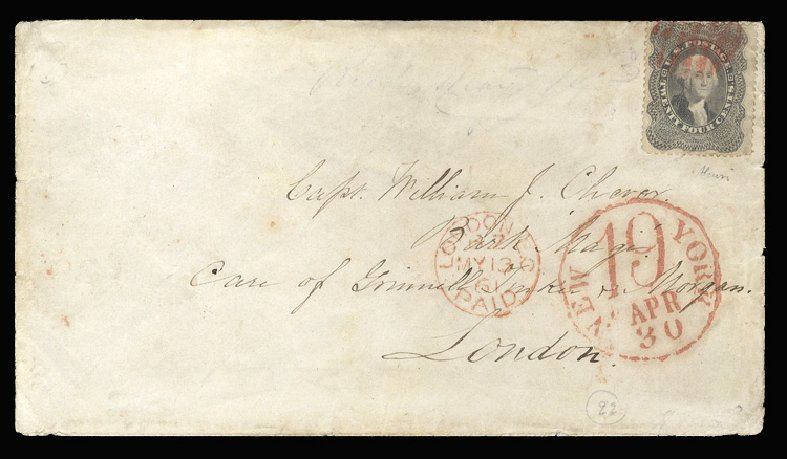 U.S. POSTAGE
TWENTY FOUR CENTS
Henri
Capt. William J. Chever.
Bark Magi
Care of Grinnell Tinker & Morgan.
London.
LONDON
MY 13
61
PAID
NEW YORK
19
APR
30
22